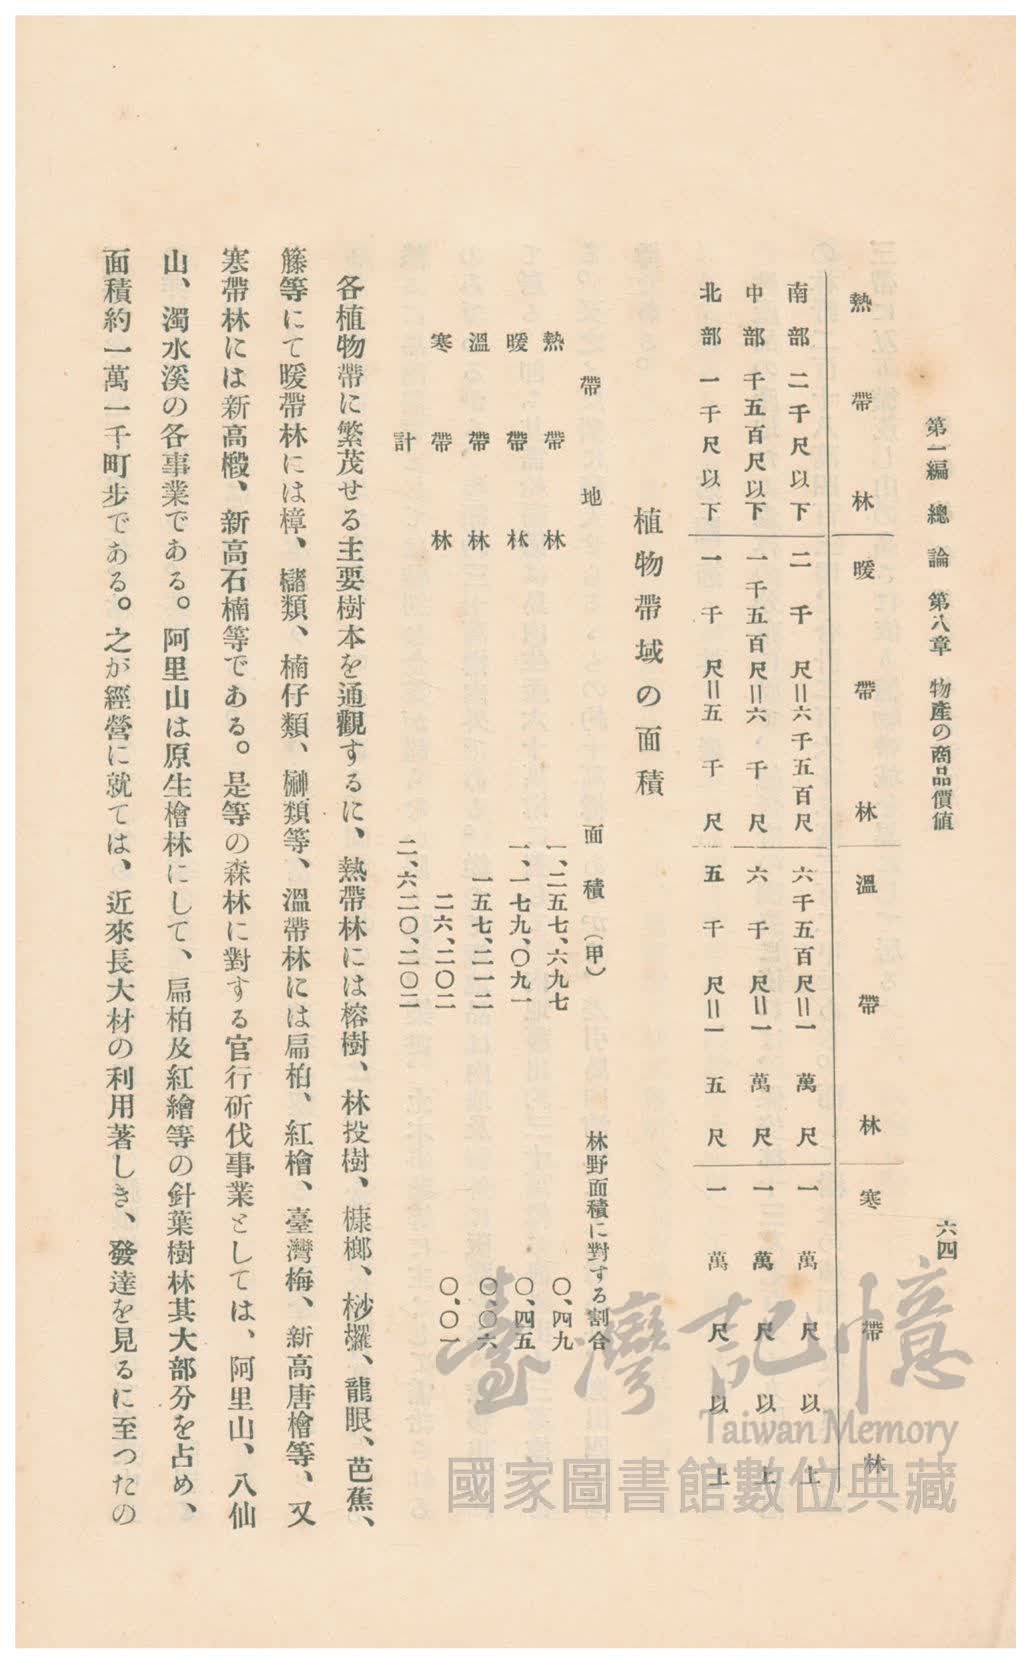 第一編 總論 第八章 物產の商品價値
六四
熱帶林 暖帶林 溫帶林 寒帶林
南部 二千尺以下 二千尺=六千五百尺 六千五百尺=一萬尺 一萬尺以上
中部 千五百尺以下 一千五百尺=六千尺 六千尺=一萬尺 一萬尺以上
北部 一千尺以下 一千尺=五千尺 五千尺=一五尺 一萬尺以上
植物帶域の面積
帶地 面積(甲) 林野面積に對する割合
熱帶林 一、二五七、六九七 〇、四九
暖帶林 一、一七九、〇九一 〇、四五
溫帶林 一五七、二一二 〇、〇六
寒帶林 二六、二〇二 〇、〇一
計 二、六二〇、二〇二
各植物帶に繁茂せる主要樹本を通觀するに、熱帶林には榕樹、林投樹、槺榔、桫欏、龍眼、芭蕉、
籐等にて暖帶林には樟、櫧類、楠仔類、榊類等、溫帶林には扁柏、紅檜、臺灣梅、新高唐檜等、又
寒帶林には新高椴、新高石楠等である。是等の森林に對する官行斫伐事業としては、阿里山、八仙
山、濁水溪の各事業である。阿里山は原生檜林にして、扁柏及紅繪等の針葉樹林其大部分を占め、
面積約一萬一千町步である。之が經營に就ては、近來長大材の利用著しき、發達を見るに至つたの
臺灣記憶
Taiwan Memory
國家圖書館數位典藏